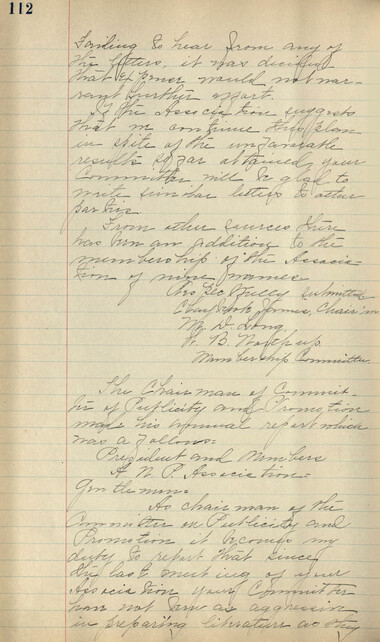 112
Failing to hear from any of
the letters, it was decided
that would not war-
rant further effort.
If the Association suggests
that we continue this plan
in spite of the unfavorable
results so far attained, your
Committee will be glad to
write similar letters to other
parties.
From other sources there
has been an addition to the
membership of the Associa-
tion of nine names
submitted
Chairman
W. D. Long
W. B.
Membership Committee.
The Chairman of Commit-
tee of Publicity and Promotion
made his annual report which
was as follows:
President and Members
A. N. P. Association:
Gentlemen:
As chairman of the
Committee on Publicity and
Promotion it becomes my
duty to report that since
the last meeting of your
Association your Committee
have not been as aggressive
in preparing literature as they